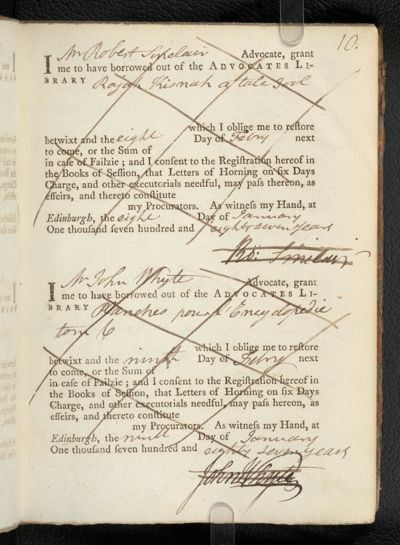 10.
I Mr Robert Sinclair Advocate, grant
me to have borrowed out of the ADVOCATES LI-
BRARY Rajah Kisnah a tale 3vol
which I oblige me to reſtore
betwixt and the eight Day of Febry next
to come, or the Sum of
in caſe of Failzie; and I conſent to the Regiſtration hereof in
the Books of Seſſion, that Letters of Horning on ſix Days
Charge, and other executorials needful, may paſs thereon, as
effeirs, and thereto conſtitute
my Procurators. As witneſs my Hand, at
Edinburgh, the eight Day of January
One thouſand ſeven hundred and eighty seven years
Rot: Sinclair
I Mr John Whyte Advocate, grant
me to have borrowed out of the ADVOCATES LI-
BRARY Planches pour l'Encyclopedie
tom 6
which I oblige me to reſtore
betwixt and the ninth Day of Febry next
to come, or the Sum of
in caſe of Failzie; and I conſent to the Regiſtration hereof in
the Books of Seſſion, that Letters of Horning on ſix Days
Charge, and other executorials needful, may paſs hereon, as
effeirs, and thereto conſtitute
my Procurators. As witneſs my Hand, at
Edinburgh, the ninth Day of January
One thouſand ſeven hundred and eighty seven years
John Whyte